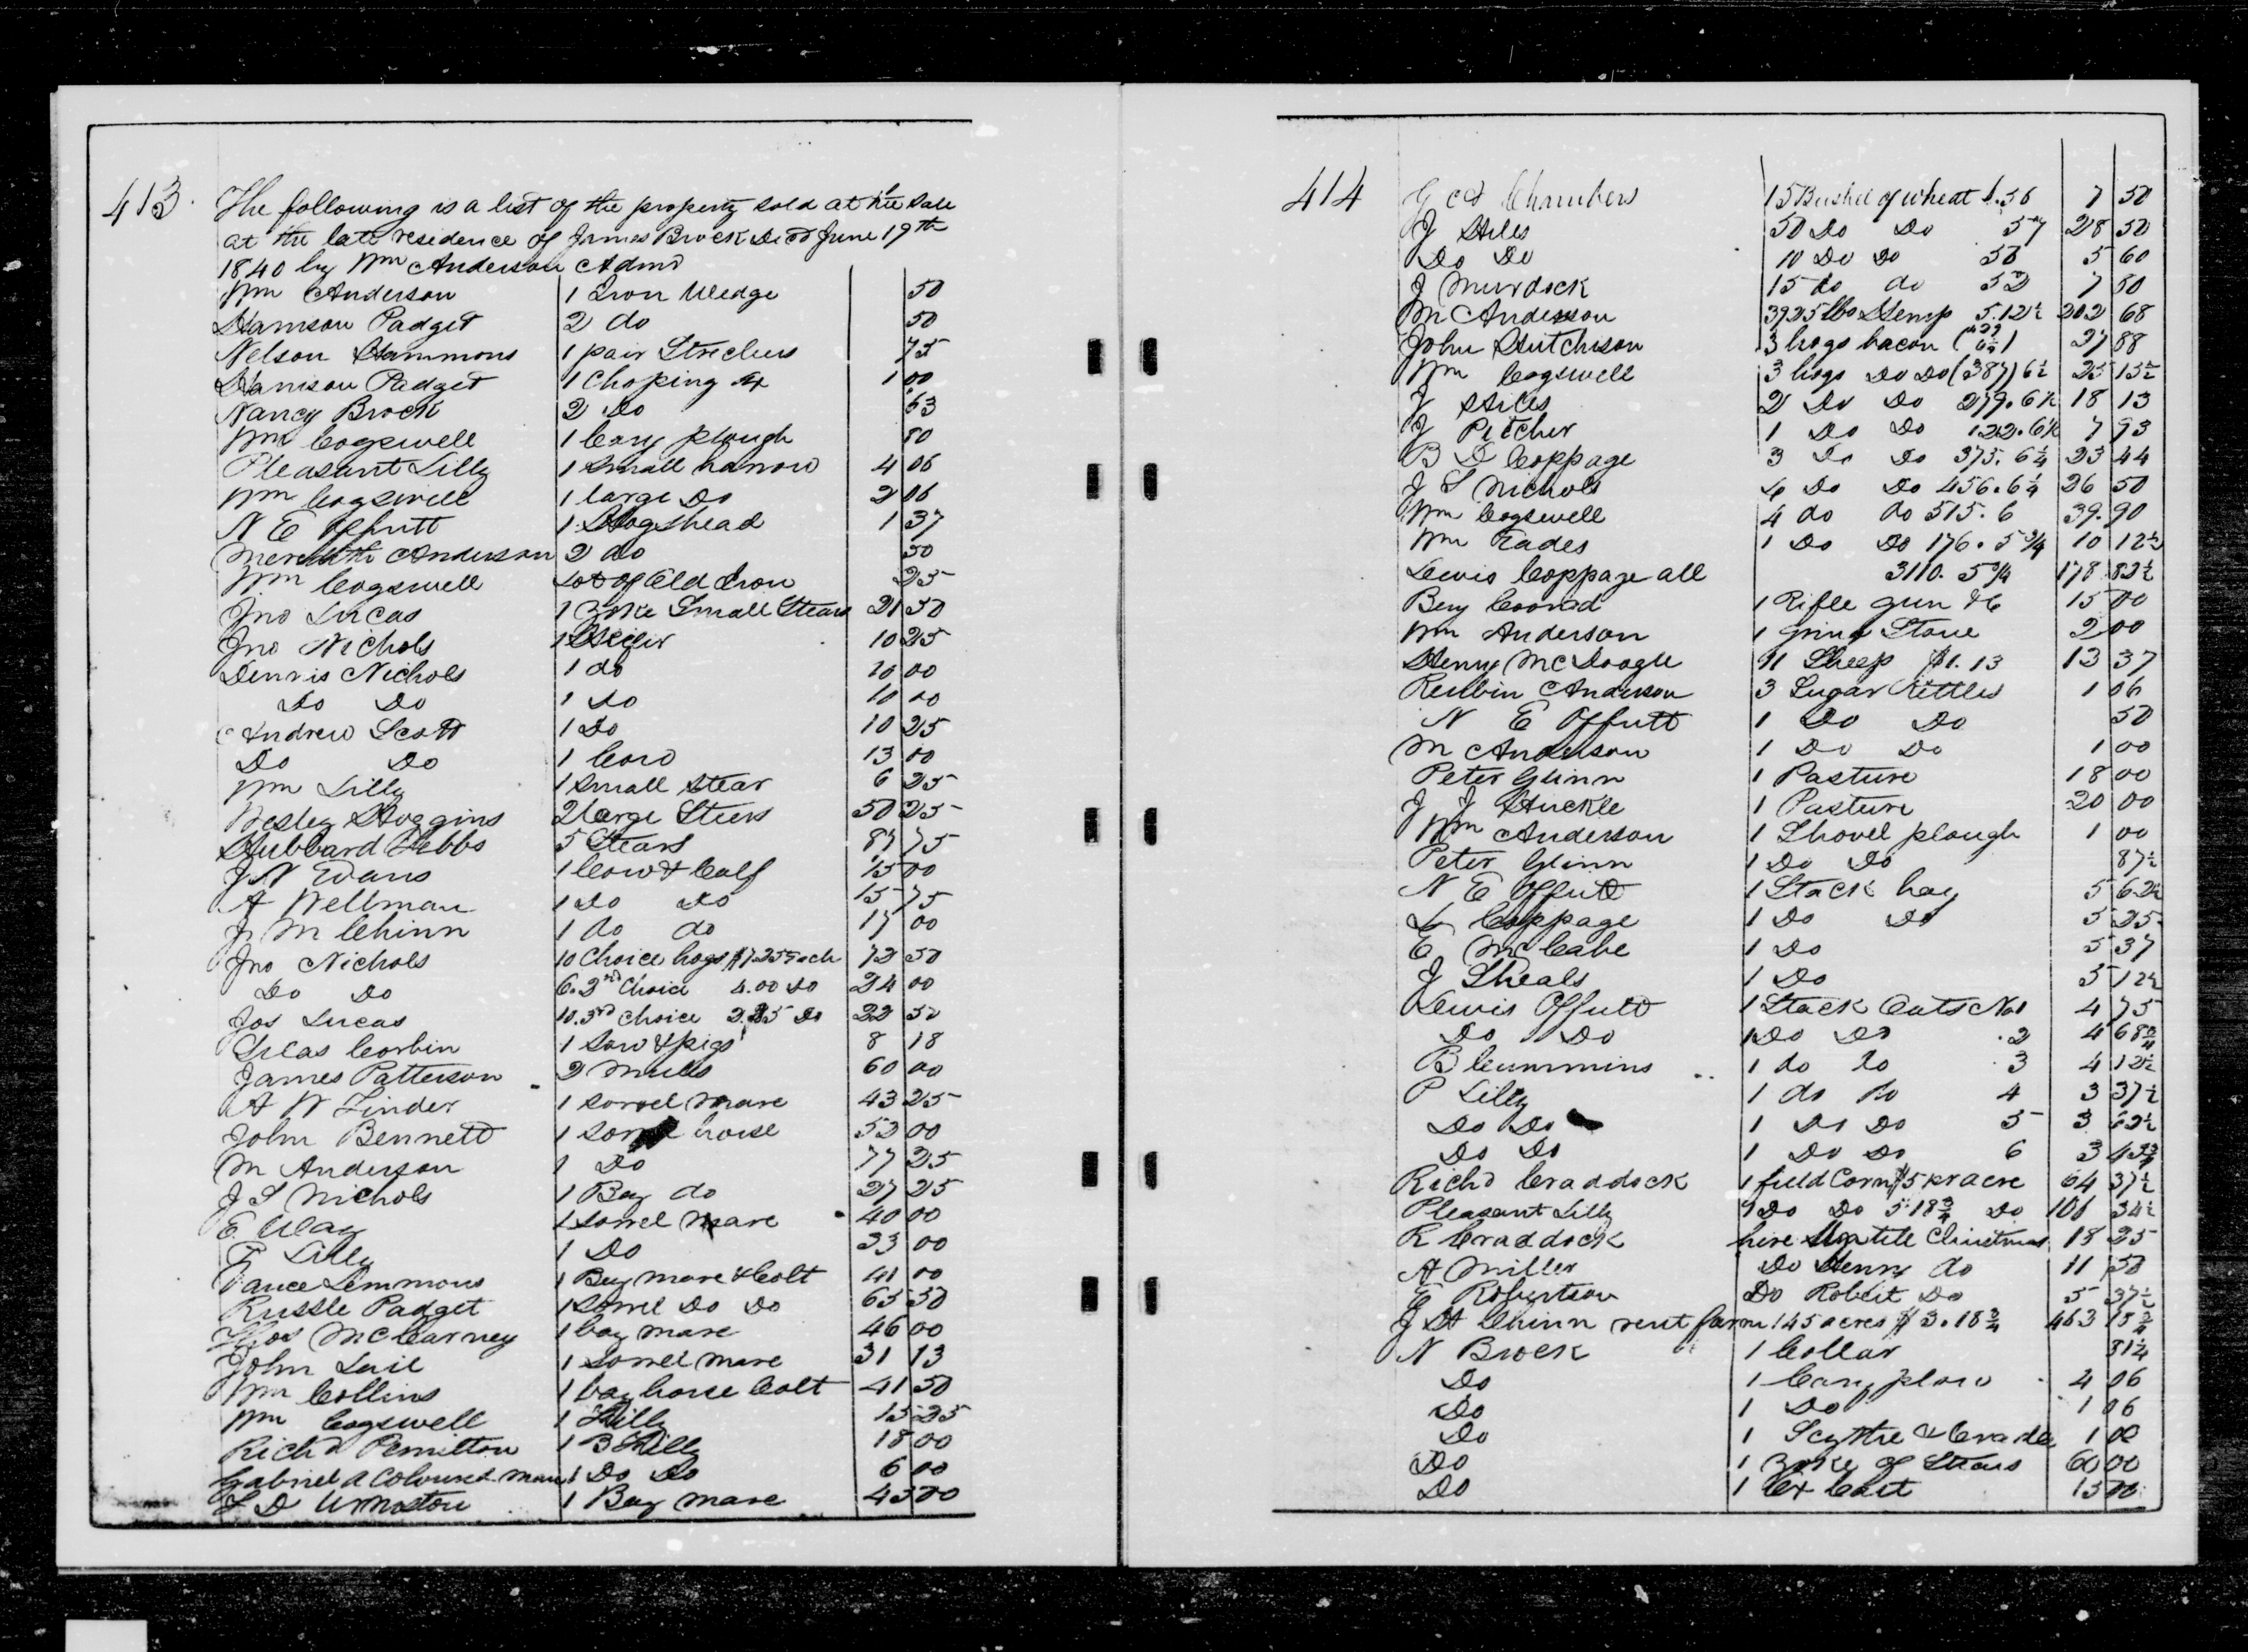 413. The following is a list of the property sold at the sale
at the late residence of James Brock Decd June 19th
1840 by Wm Anderson Admr
Wm Anderson 1 Iron Wedge 50
Harrison Padget 2 do 50
Nelson Hammons 1 pair Strechers 75
Harrison Padget 1 Choping Ax 1 00
Nancy Brock 2 Do 63
Wm Cogswell 1 Cary plough 80
Pleasant Lilly 1 small harrow 4 06
Wm Cogswell 1 large Do 2 06
N E Offutt 1 Hogshead 1 37
Meredith Anderson 2 do 50
Wm Cogswell Lot of Old Iron 25
Jno Lucas 1 Yoke Small Stears 21 50
Jno Nichols 1 10 25
Dennis Nichols 1 do 10 00
Do Do 1 Do 10 00
Andrew Scott 1 Do 10 25
Do Do 1 Cow 13 00
Wm Lilly 1 small Stear 6 25
Besley Hoggins 2 large Steers 50 25
Hubbard Hebbs 5 Stears 87 75
J N Evans 1 Cow & Calf 15 00
A Wellman 1 Do Do 15 75
J M Chinn 1 do do 17 00
Jno Nichols 10 Choice hogs $7.25 Each 72 50
Do Do 6. 2nd Choice 4.00 Do 24 00
Jos Lucas 10. 3rd choice 2.25 Do 22 50
Silas Corbin 1 Sow & pigs 8 18
James Patterson 2 Mules 60 00
A W Linder 1 Sorrel Mare 43 25
John Bennett 1 Sorrel horse 52 00
M Anderson 1 Do 77 25
J S Nichols 1 Bay do 27 25
E. Way 1 Sorrel Mare 40 00
P Lilly 1 Do 33 00
Vance Lemmons 1 Bay Mare & Colt 41 00
Russle Padget 1 Sorrel Do Do 65 50
Thos McCarney 1 bay mare 46 00
John Lail 1 Sorrel Mare 31 13
Wm Collins 1 bay horse Colt 41 50
Wm Cogswell 1 Filly 15 25
Richd Pemilton 1 B Filly 18 00
Gabriel a Coloured man 1 Do Do 6 00
T D Urmston 1 Bay Mare 45 00
414 J A Chambers 15 Bushel of wheat $.50 7 50
J Hiles 50 Do Do 57 28 50
Do Do 10 Do Do 56 5 60
J Murdock 15 do do 52 7 80
M Anderson 3925 lbs Hemp 5.12½ 202 68
John Hutchison 3 hogs bacon 27 88
Wm Cogswell 3 hogs Do Do (387) 6½ 25 15½
J Hiles 2 Do Do 279. 6½ 18 13
J Pitcher 1 Do Do 122. 6½ 7 93
B D Coppage 3 Do Do 375. 6¼ 23 44
J S Nichols 4 Do Do 456. 6¼ 26 50
Wm Cogswell 4 do do 515. 6 39. 90
Wm Eades 1 Do Do 176. 5¾ 10 12½
Lewis Coppage all 3110. 5¾ 178 82½
Benj Conrad 1 Rifle gun &c 15 00
Wm Anderson 1 Grind Stone 2 00
Henry McDoogle 11 Sheep $1.13 13 37
Reubin Anderson 3 Sugar Kettles 1 06
N E Offutt 1 Do Do 50
M Anderson 1 Do Do 1 00
Peter Glinn 1 Pasture 18 00
J J Huckle 1 Pasture 20 00
Wm Anderson 1 Shovel plough 1 00
Peter Glinn 1 Do Do 87½
N E Offutt 1 Stack hay 5 62½
L Coppage 1 Do Do 5 25
E McCabe 1 Do 5 37
J Sheals 1 Do 5 12½
Lewis Offutt 1 Stack Oats No 1 4 75
Do Do 1 Do Do .2 4 68¾
B Cummins 1 do do 3 4 12½
P Lilly 1 do Do 4 3 37½
Do Do 1 Do Do 5 3 62½
Do Do 1 Do Do 6 3 43¾
Richd Craddock 1 field Corn $5 pr acre 64 37½
Pleasant Lilly 1 Do Do 5.18¾ Do 106 34½
R Craddock hire till Christmas 18 25
A Miller Do Henry do 11 50
E Robertson Do Robert Do 5 37½
J A Chinn rent farm 145 acres $3.18¾ 463 18¾
N Brock 1 Collar 31¼
Do 1 Cary plow 4 06
Do 1 Do 1 06
Do 1 Scythe & Cradle 1 00
Do 1 Yoke of Stears 60 00
Do 1 Ox Cart 15 00